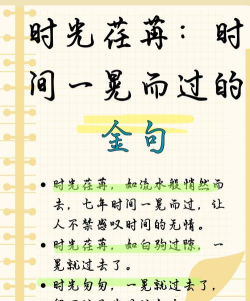 时光荏苒：时
间一晃而过的
金句
时光荏苒，如流水般悄然而
去，七年时间一晃而过，让
人不禁感叹时间的无情。
时光荏苒，如白驹过隙，一
晃就过去了。
时光匆匆，一晃就过去了，